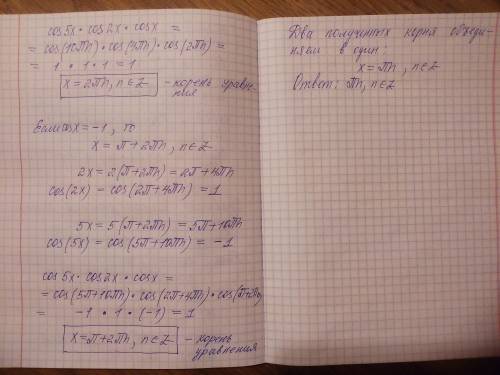 cos5x · cos2x · cosx =
= cos(10πn) · cos(4πn) · cos(2πn) =
= 1 · 1 · 1 = 1
x = 2πn, n∈Z - корень уравне-
ния
Если cosx = -1, то
x = π + 2πn, n∈Z
2x = 2(π+2πn) = 2π+4πn
cos(2x) = cos(2π+4πn) = 1
5x = 5(π+2πn) = 5π+10πn
cos(5x) = cos(5π+10πn) = -1
cos5x · cos2x · cosx =
= cos(5π+10πn) · cos(2π+4πn) · cos(π+2πn)
= -1 · 1 · (-1) = 1
x = π+2πn, n∈Z - корень
уравнения
Два полученных корня объеди-
няем в один:
x = πn, n∈Z
Ответ: πn, n∈Z